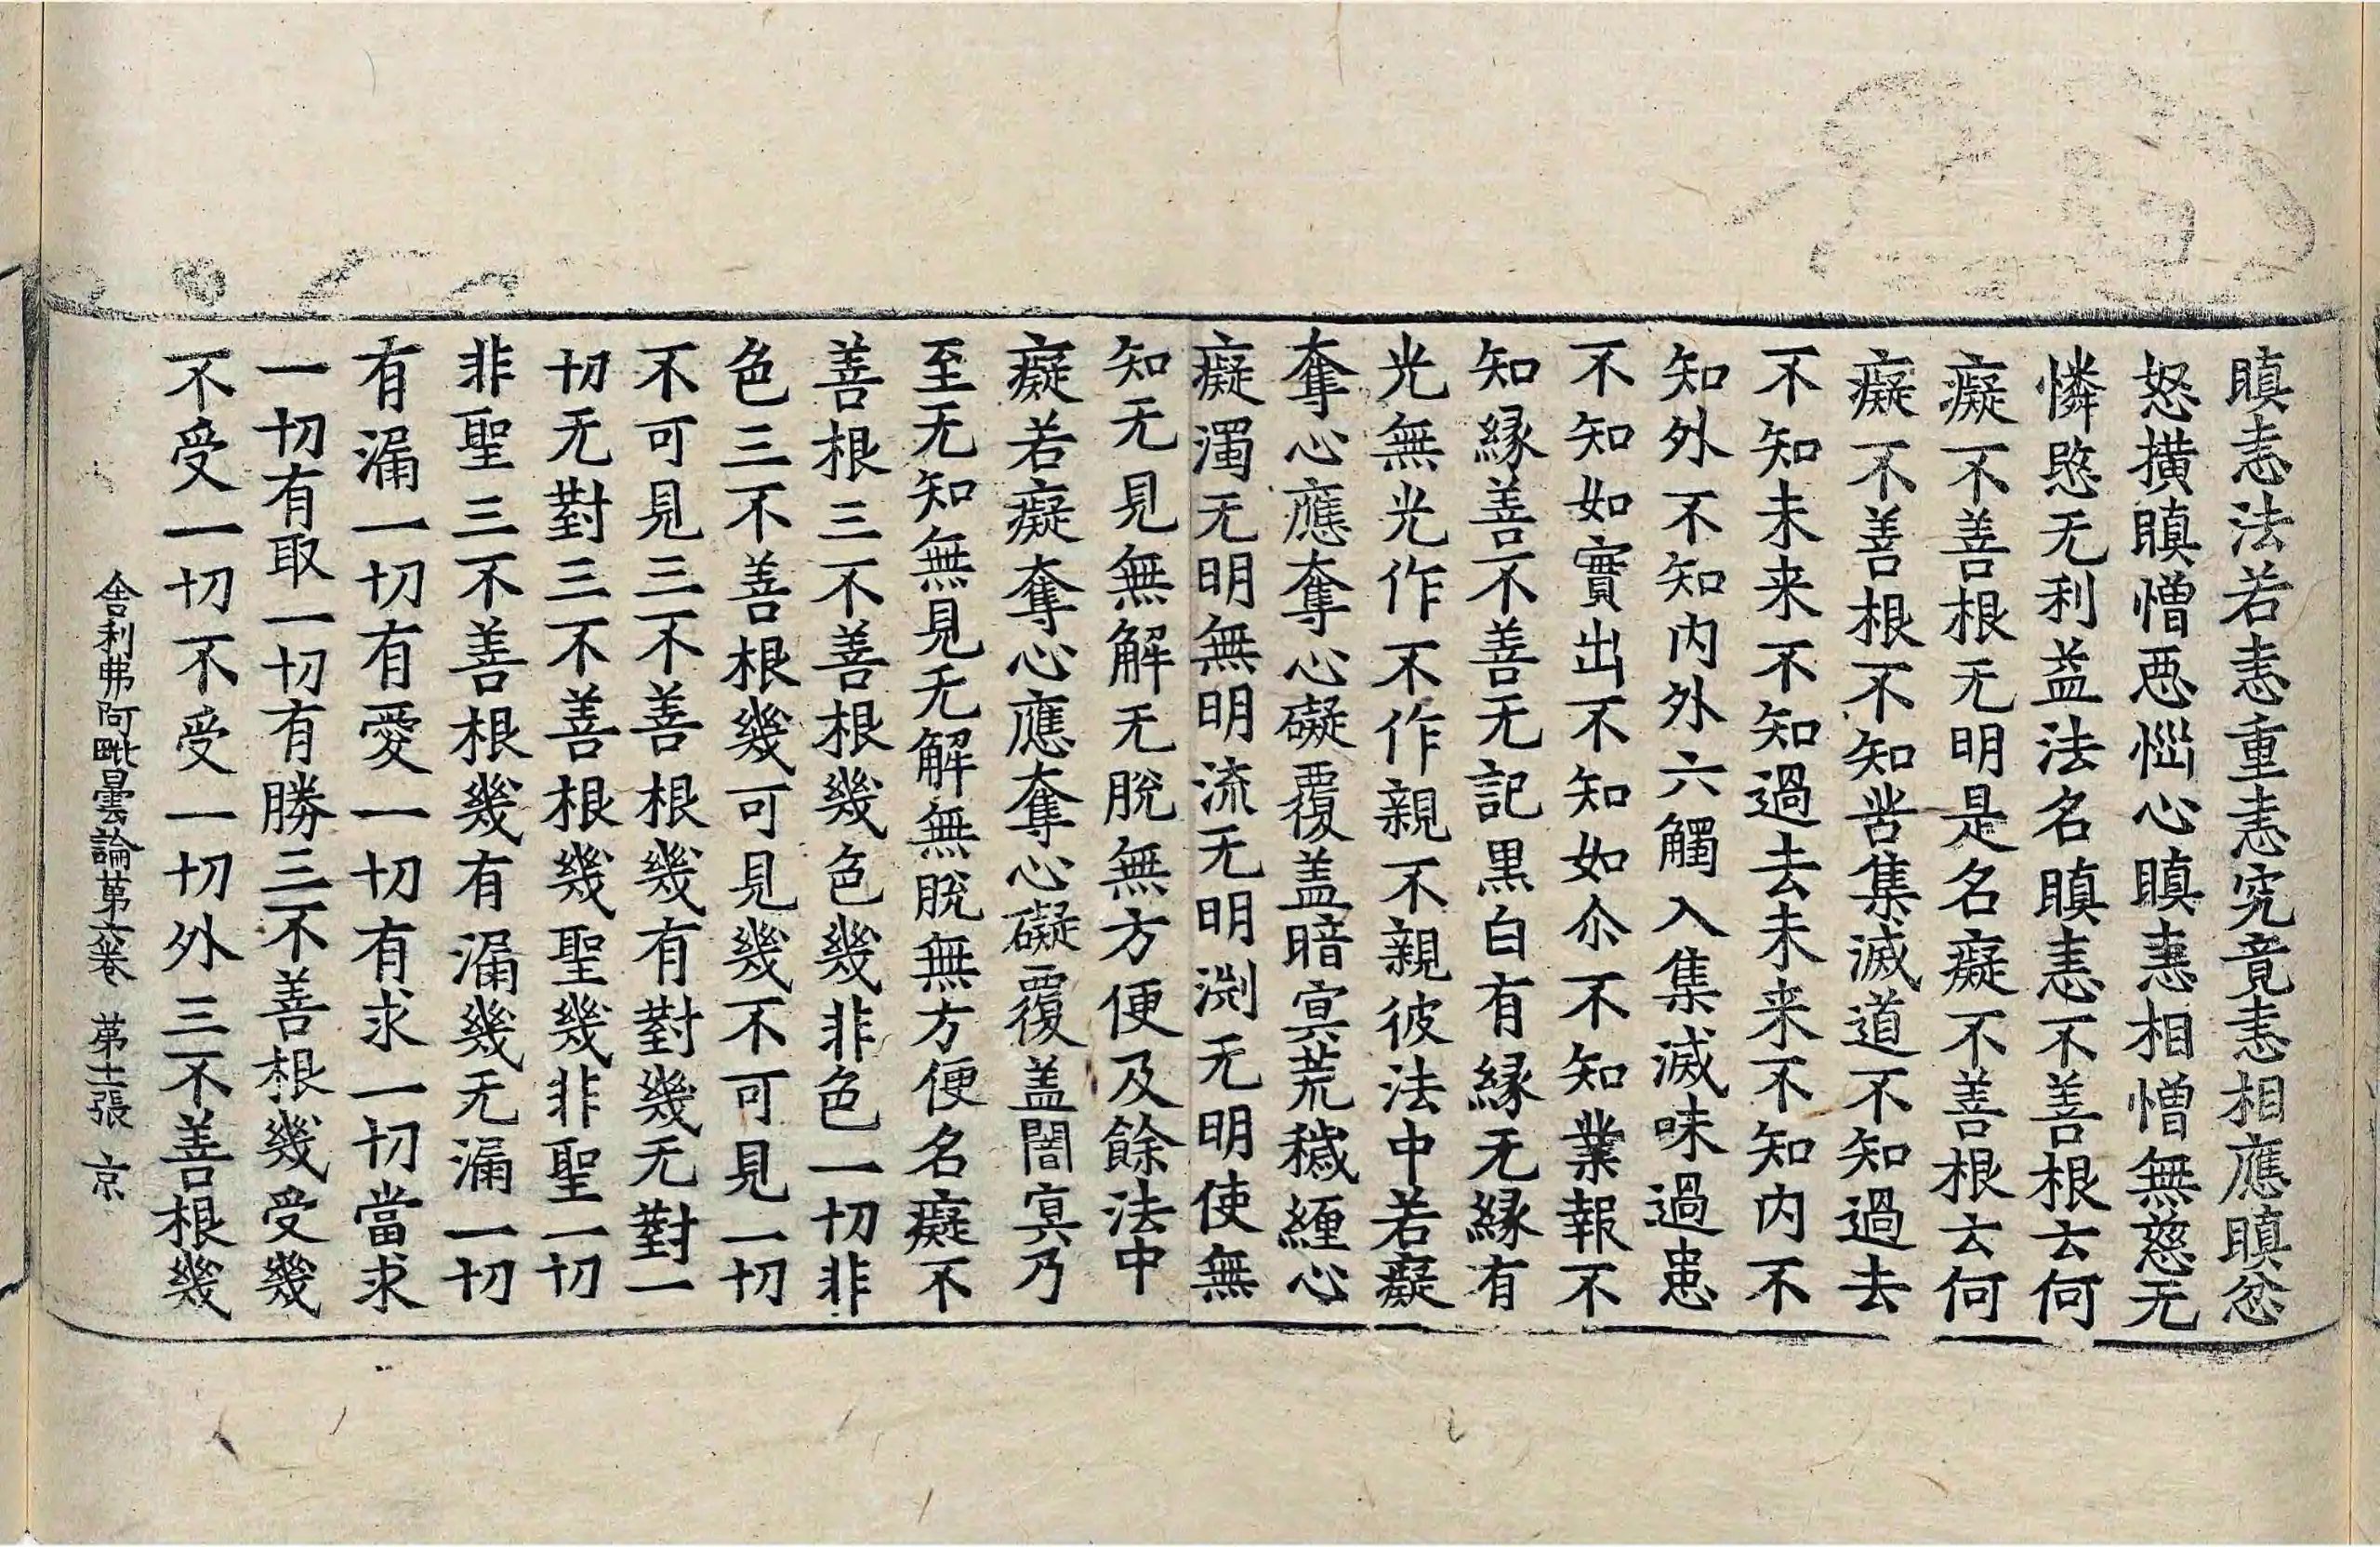 瞋恚法若恚重恚究竟恚相應瞋忿
怒㨪瞋憎惡惱心瞋恚相憎無慈无
憐愍无利益法名瞋恚不善根云何
癡不善根无明是名癡不善根云何
癡不善根不知苦集滅道不知過去
不知未来不知過去未来不知内不
知外不知内外六觸入集滅味過患
不知如實出不知如尒不知業報不
知縁善不善无記黒白有縁无縁有
光無光作不作親不親彼法中若癡
奪心應奪心礙覆盖暗㝠荒穢纏心
癡濁无明無明流无明渕无明使無
知无見無解无脫無方便及餘法中
癡若癡奪心應奪心礙覆盖闇㝠乃
至无知無見无解無脫無方便名癡不
善根三不善根幾色幾非色一切非
色三不善根幾可見幾不可見一切
不可見三不善根幾有對幾无對一
切无對三不善根幾聖幾非聖一切
非聖三不善根幾有漏幾无漏一切
有漏一切有愛一切有求一切當求
一切有取一切有勝三不善根幾受幾
不受一切不受一切外三不善根幾
舍利弗阿毗曇論苐六卷 苐十二張 京